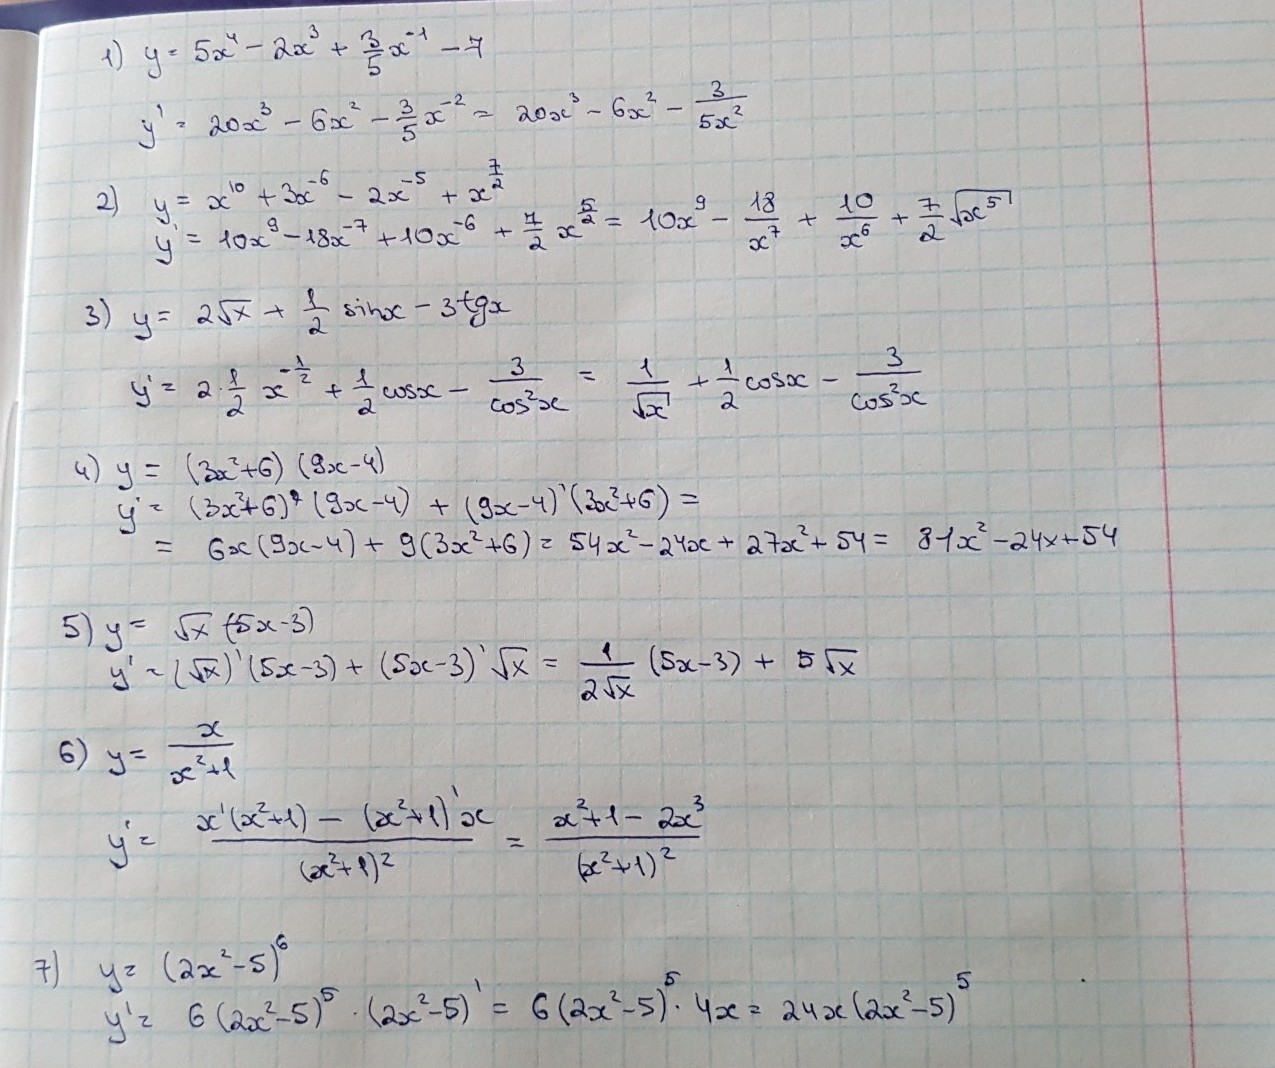 1) y = 5x⁴ - 2x³ + 3/5 x⁻¹ - 7
y' = 20x³ - 6x² - 3/5 x⁻² = 20x³ - 6x² - 3/(5x²)
2) y = x¹⁰ + 3x⁻⁶ - 2x⁻⁵ + x^(7/2)
y' = 10x⁹ - 18x⁻⁷ + 10x⁻⁶ + 7/2 x^(5/2) = 10x⁹ - 18/x⁷ + 10/x⁶ + 7/2 √(x⁵)
3) y = 2√x + 1/2 sinx - 3tgx
y' = 2·1/2 x^(-1/2) + 1/2 cosx - 3/(cos²x) = 1/√x + 1/2 cosx - 3/(cos²x)
4) y = (3x²+6)(9x-4)
y' = (3x²+6)'(9x-4) + (9x-4)'(3x²+6) =
= 6x(9x-4) + 9(3x²+6) = 54x² - 24x + 27x² + 54 = 81x² - 24x + 54
5) y = √x (5x-3)
y' = (√x)'(5x-3) + (5x-3)'√x = 1/(2√x) (5x-3) + 5√x
6) y = x/(x²+1)
y' = (x'(x²+1) - (x²+1)'x)/((x²+1)²) = (x²+1 - 2x³)/((x²+1)²)
7) y = (2x²-5)⁶
y' = 6(2x²-5)⁵ · (2x²-5)' = 6(2x²-5)⁵ · 4x = 24x(2x²-5)⁵